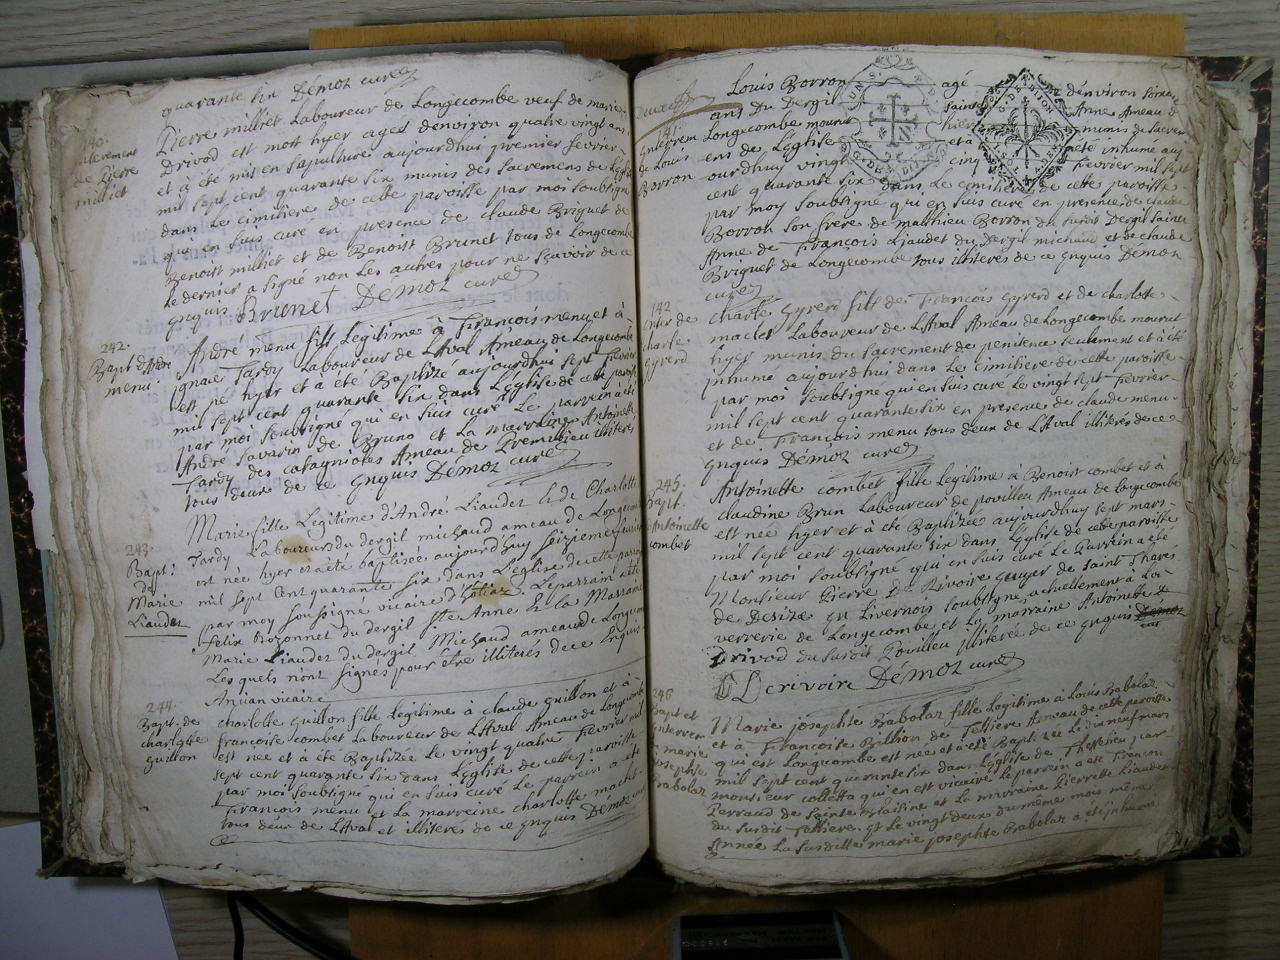 quarante six Démoz curé
140.
enterrement
de Pierre
milliet
Pierre milliet Laboureur de Longecombe veuf de marie
Drivod est mort hyer agés denviron quatre vingt ans
et à été mis en sepulture aujourdhuy premier fevrier
mil sept cent quarante six munis des sacremens de l'Eglise
dans Le cimitiere de cette paroisse par moi soubsigné
qui en suis curé en presence de claude Briguet de
Benoist milliet et de Benoist Brunet tous de Longecombe
Le dernier a signé non Les autres pour ne sçavoir de ce
gnquis Brunet Démoz curé
242.
Bapt. d'André
menu
André menu fils Legitime à François menu et à
gnace Tardy Laboureur de LAval Ameau de Longecombe
est né hyer et a été Baptizé aujourdhui sept fevrier
mil sept cent quarante six dans L'eglise de cette paroisse
par moi soubsigné qui en suis curé Le parrein a été
André Savarin de Bruno et La marraine Antoinette
Tardy des catagnioles Ameau de Premilieu illiterés
tous deux de ce gnquis Démoz curé
243.
Bapt:
de
Marie
Liaudet
Marie fille Legitime d'André Liaudet & de Charlotte
Tardy Laboureurs du dergil michaud ameau de Longecombe
est née hyer et a été baptisée aujourdhuy seizieme fevrier
mil sept cent quarante six dans L'eglise de cette paroisse
par moy soussigné vicaire d' Le parrain a été
Felix Rozonnet du dergil Ste Anne & la Marraine
Marie Liaudet du dergil Michaud ameau de Longecombe
Les quels n'ont signés pour être illiterés de ce Enquis
Anjan vicaire
244.
Bapt. de
charlotte
guillon
charlotte guillon fille Legitime à claude guillon et à
françoise combet Laboureur de LAval Ameau de Longecombe
est née et a été Baptizée le vingt quatre fevrier mil
sept cent quarante six dans L'eglise de cette paroisse
par moi soubsigné qui en suis curé Le parrein a été
François menu et La marreine charlotte maclet
tous deux de LAval et illiterés de ce gnquis Démoz curé
141.
Enterrem
de Louis
Borron
Louis Borron agé denviron soixante
ans Du Dergil sainte Anne Ameau de
Longecombe mourut hier munis du sacrem
ens de L'église et a été inhumé auj
ourdhuy vingt cinq fevrier mil sept
cent quarante six dans Le cimitiere de cette paroisse
par moy soubsigné qui en suis curé en presence de claude
Borron son frere de matthieu Borron du susdit Dergil Sainte
Anne de François Liaudet du Dergil michaud et de claude
Briguet de Longecombe tous illiterés de ce gnquis Démoz
curé
142
Enter de
charle
Gyrerd
charle Gyrerd fils de François Gyrerd et de charlote
maclet Laboureur de LAval Ameau de Longecombe mourut
hyer munis du sacrement de penitence seulement et à été
inhumé aujourdhui dans Le cimitiere de cette paroisse
par moi soubsigné qui en suis curé Le vingt sept fevrier
mil sept cent quarante six en presence de claude menu
et de François menu tous deux de LAval illiterés de ce
gnquis Démoz curé
245.
Bapt.
Antoinette
combet
Antoinette combet fille Legitime à Benoist combet et à
claudine Brun Laboureur de povilleu Ameau de Longecombe
est née hyer et à été Baptizée aujourdhuy sept mars
mil sept cent quarante six dans L'eglise de cette paroisse
par moi soubsigné qui en suis curé Le Parrein a été
Monsieur Pierre De Rivoire guyer de Saint Tharés
de Desize en Nivernois soubsigné, actuellement à La
verrerie de Longecombe et La marraine Antoinette
Drivod du susdit Povilleu illiterée de ce gnquis
Derivoire Démoz curé
246
Bapt et
enterrem
marie
josephte
Rabolaz
Marie josephte Rabolaz fille Legitime à Louis Rabolaz
et à Françoise Billion de Tessiere Ameau de cette paroisse
qui est Longecombe est née et a été Baptizée Le dix neuf mars
mil sept cent quarante six dans L'eglise de Thezillieu par
monsieur colletta qui en est vicaire Le parrein a été Francois
Perraud de Sainte Blaisine et La marraine Pierrette Liaudet
du susdit Tessiere. Et Le vingt deux du même mois même
Année La susditte marie josephte Rabolaz à été inhumé